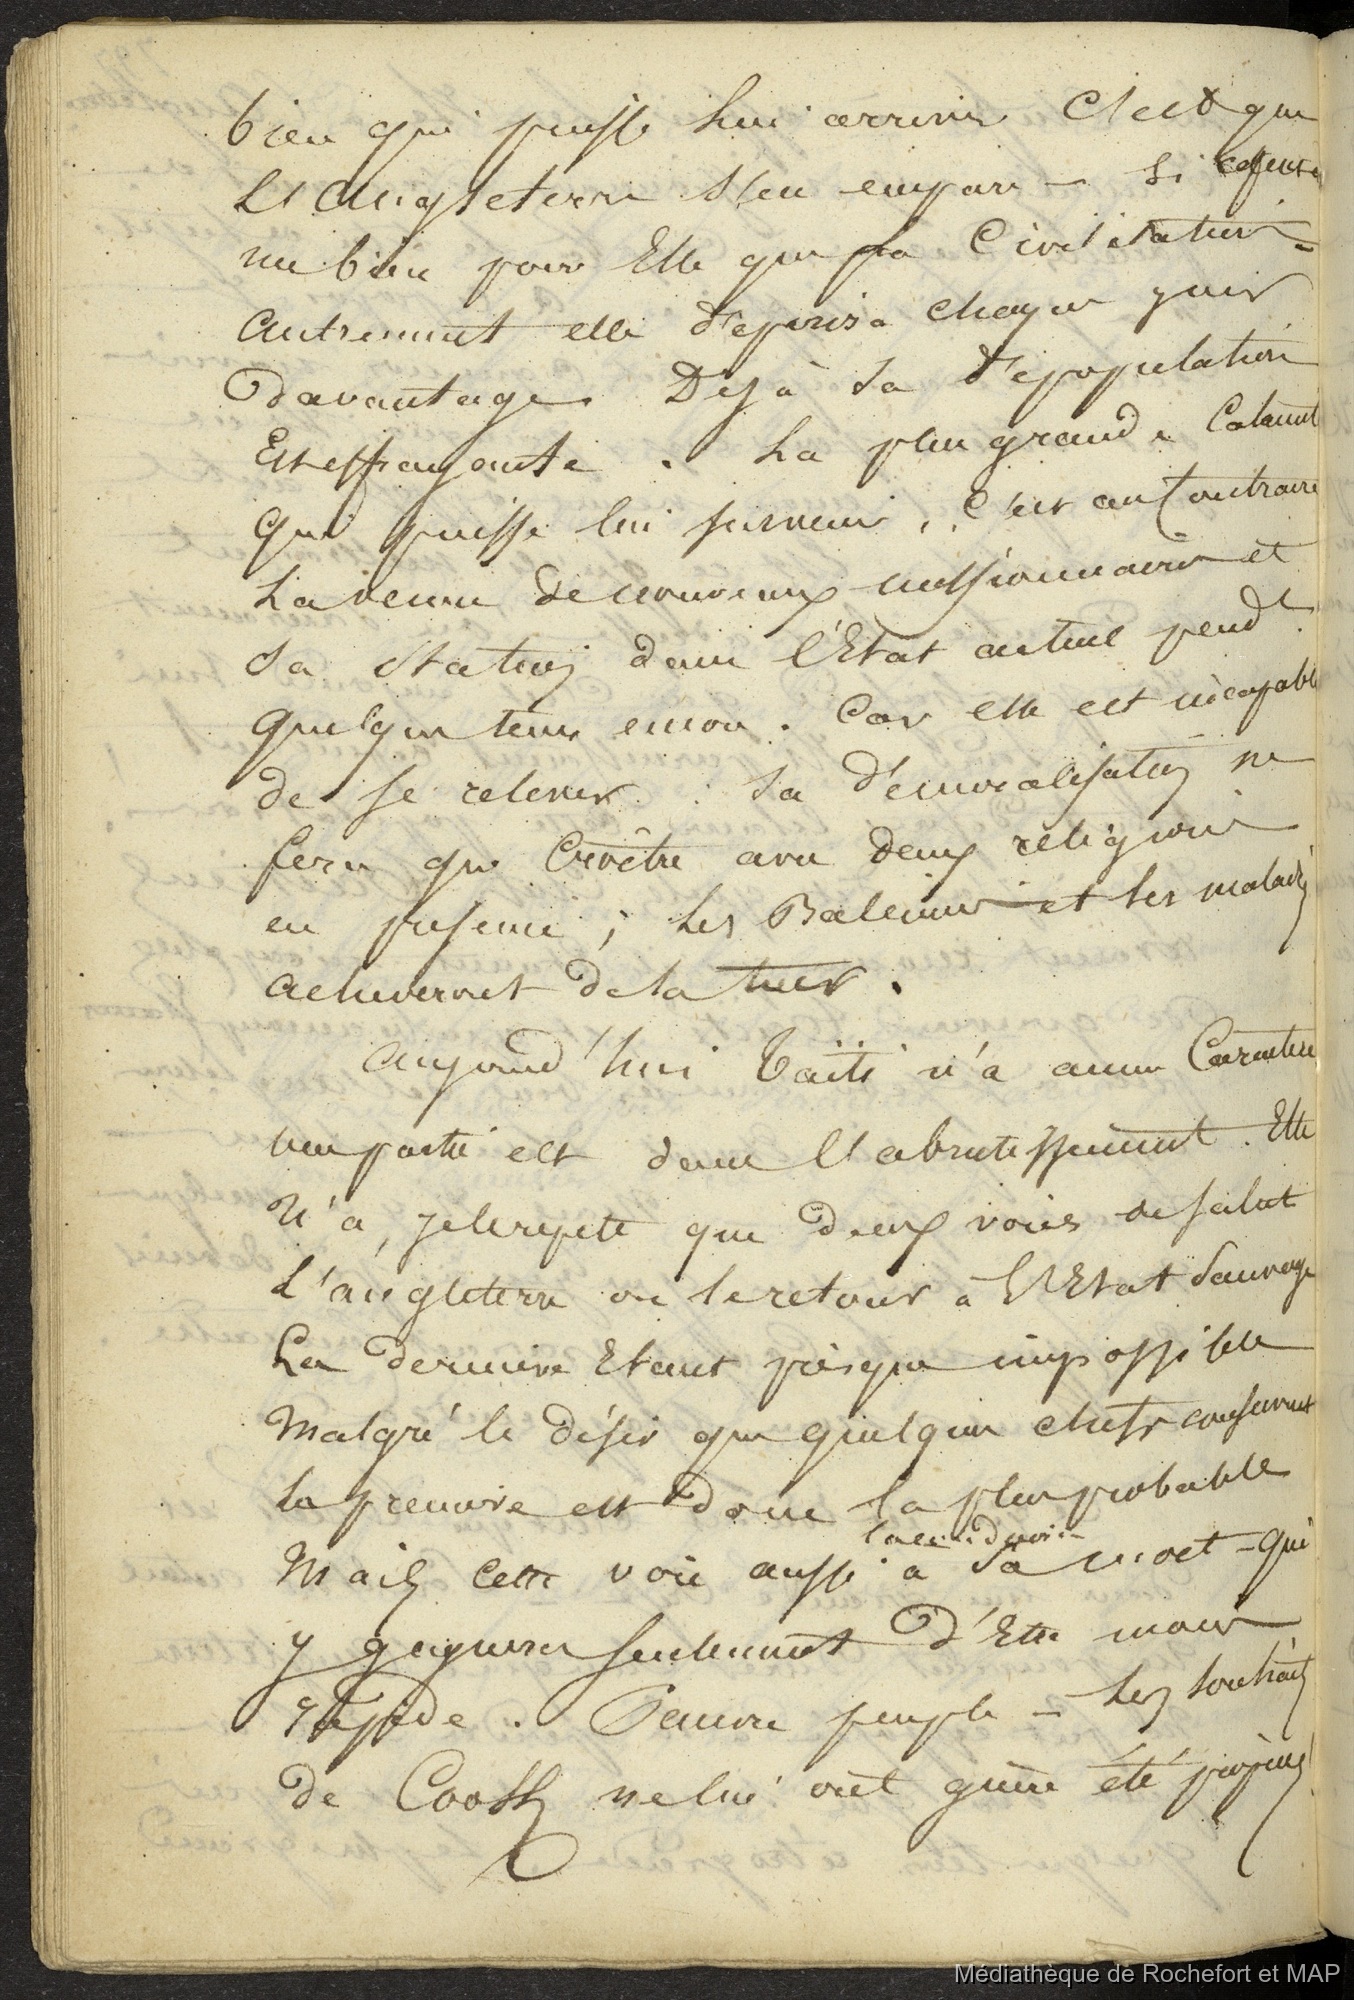 bien qui puisse lui arriver C'est que
L'Angleterre s'en empare - Si
un bien pour Elle que sa Civilisation -
Autrement elle déperira chaque jour
Davantage. Déjà sa dépopulation
Est effrayante. La plus grande Calamité
Qui puisse lui survenir, C'est au Contraire
La venue de nouveaux missionnaires et
Sa station dans l'Etat actuel pendt
quelque tems encore. Car elle est incapable
de se relever. Sa démoralisation ne
fera que Croître avec deux religions
en présence ; Les Baleiniers et les maladies
acheveront de la tuer.
aujourd'hui Taïti n'a aucun Caractère
une partie est dans l'abrutissement. Elle
N'a, je le repete que deux voies de salut
L'angleterre ou le retour à l'Etat Sauvage
La derniere Etant presque impossible
Malgré le désir que quelques chefs conservent
la premiere est donc la plus probable
Mais cette voie aussi a sa mort - qui
y gagnera seulement d'Etre moins
rapide. Pauvre peuple - Les
de Cook ne lui ont guère été propices
Médiathèque de Rochefort et MAP